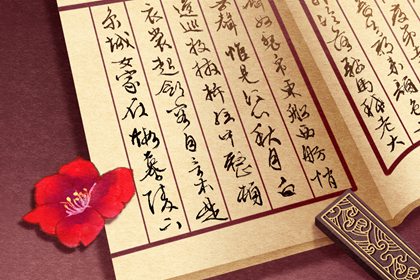 落鞍馬稀老大
如裂帛東船西舫悄
無言唯見江心秋月白
沉吟放撥插絃中整頓
衣裳起斂容自言本是
京城女家在蝦蟆陵下